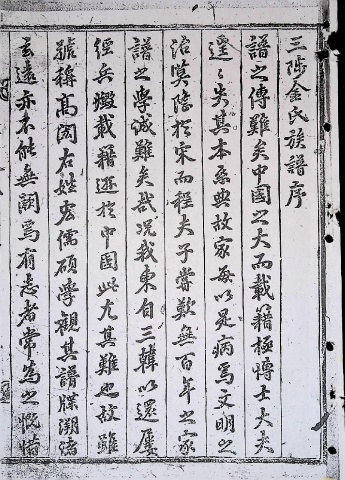 三陟金氏族譜序
譜之傳難矣中國之大而載籍極博士大夫
遑〻失其本系典故家每以是病焉文明之
治莫隆於宋而程夫子嘗歎無百年之家
譜之學誠難矣哉况我東自三韓以還屢
經兵燬載籍遜於中國此尤其難也故雖
號稱高閥右姓宏儒碩學觀其譜牒溯濬
玄遠亦未能無闕焉有志者常爲之慨惜